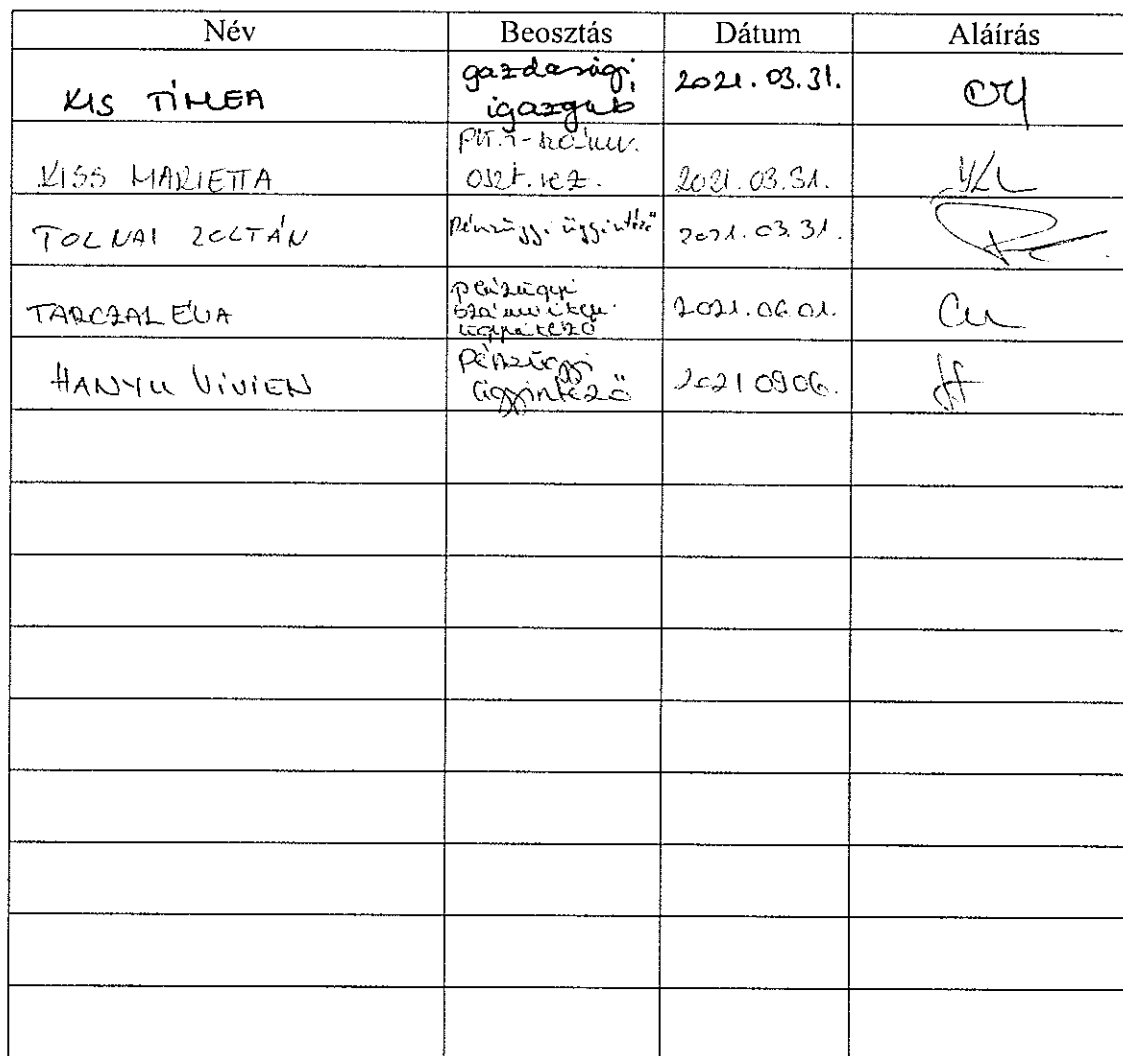 Név Beosztás Dátum Aláírás
KIS TÍMEA gazdasági igazgató 2021.03.31.
KISS MARIETTA oszt.vez. 2021.03.31.
TOLNAI ZOLTÁN pénzügyi ügyintéző 2021.03.31.
TARCZAL ÉVA pénzügyi számviteli ügyintéző 2021.06.01.
HANYU VIVIEN pénzügyi ügyintéző 2021 09 06.